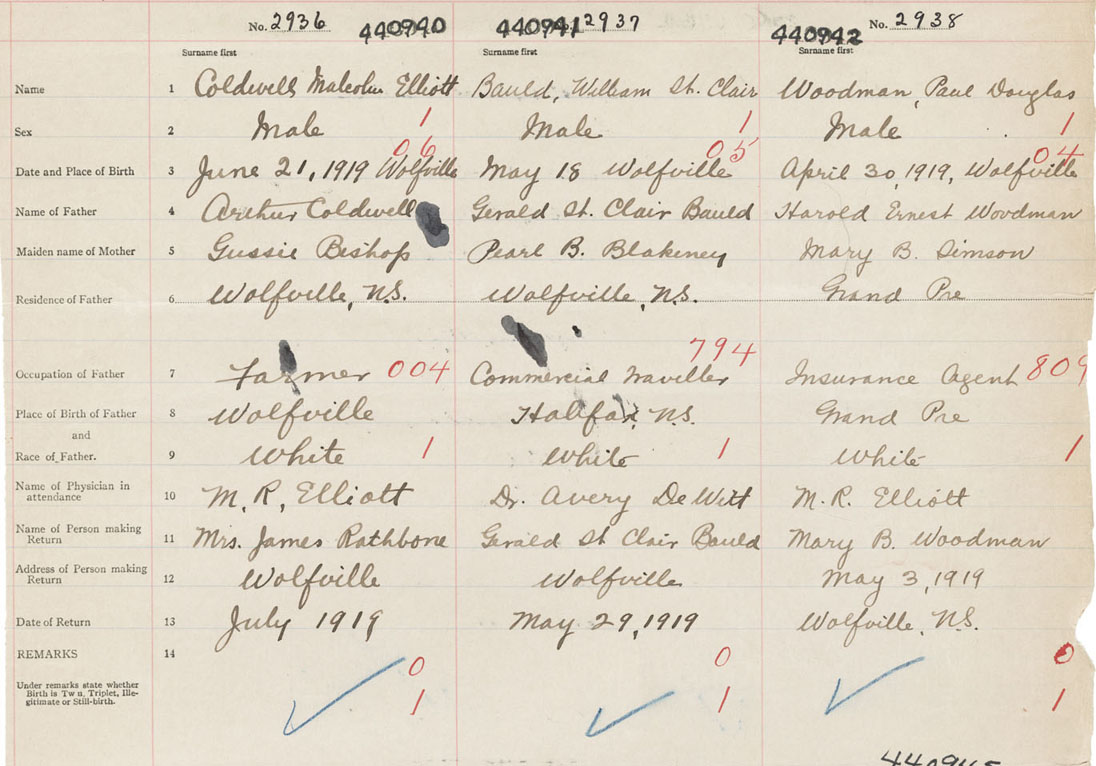 No. 2936 440940 440941 No. 2937 440942 No. 2938
Surname first Surname first Surname first
Name 1 Coldwell Malcolm Elliott Bauld, William St. Clair Woodman, Paul Douglas
Sex 2 Male 1 Male 1 Male 1
06 05 04
Date and Place of Birth 3 June 21, 1919 Wolfville May 18 Wolfville April 30, 1919, Wolfville
Name of Father 4 Arthur Coldwell Gerald St. Clair Bauld Harold Ernest Woodman
Maiden name of Mother 5 Gussie Bishop Pearl B. Blakeney Mary B. Simson
Residence of Father 6 Wolfville, N.S. Wolfville, N.S. Grand Pre
794
Occupation of Father 7 Farmer 004 Commercial Traveller Insurance Agent 809
Place of Birth of Father 8 Wolfville Halifax, N.S. Grand Pre
and
Race of Father. 9 White 1 White 1 White 1
Name of Physician in
attendance 10 M. R. Elliott Dr. Avery DeWitt M. R. Elliott
Name of Person making
Return 11 Mrs. James Rathbone Gerald St Clair Bauld Mary B. Woodman
Address of Person making
Return 12 Wolfville Wolfville May 3, 1919
Date of Return 13 July 1919 May 29, 1919 Wolfville, N.S.
REMARKS 14 0 0 0
Under remarks state whether
Birth is Tw n, Triplet, Ille-
gitimate or Still-birth. 1 1 1